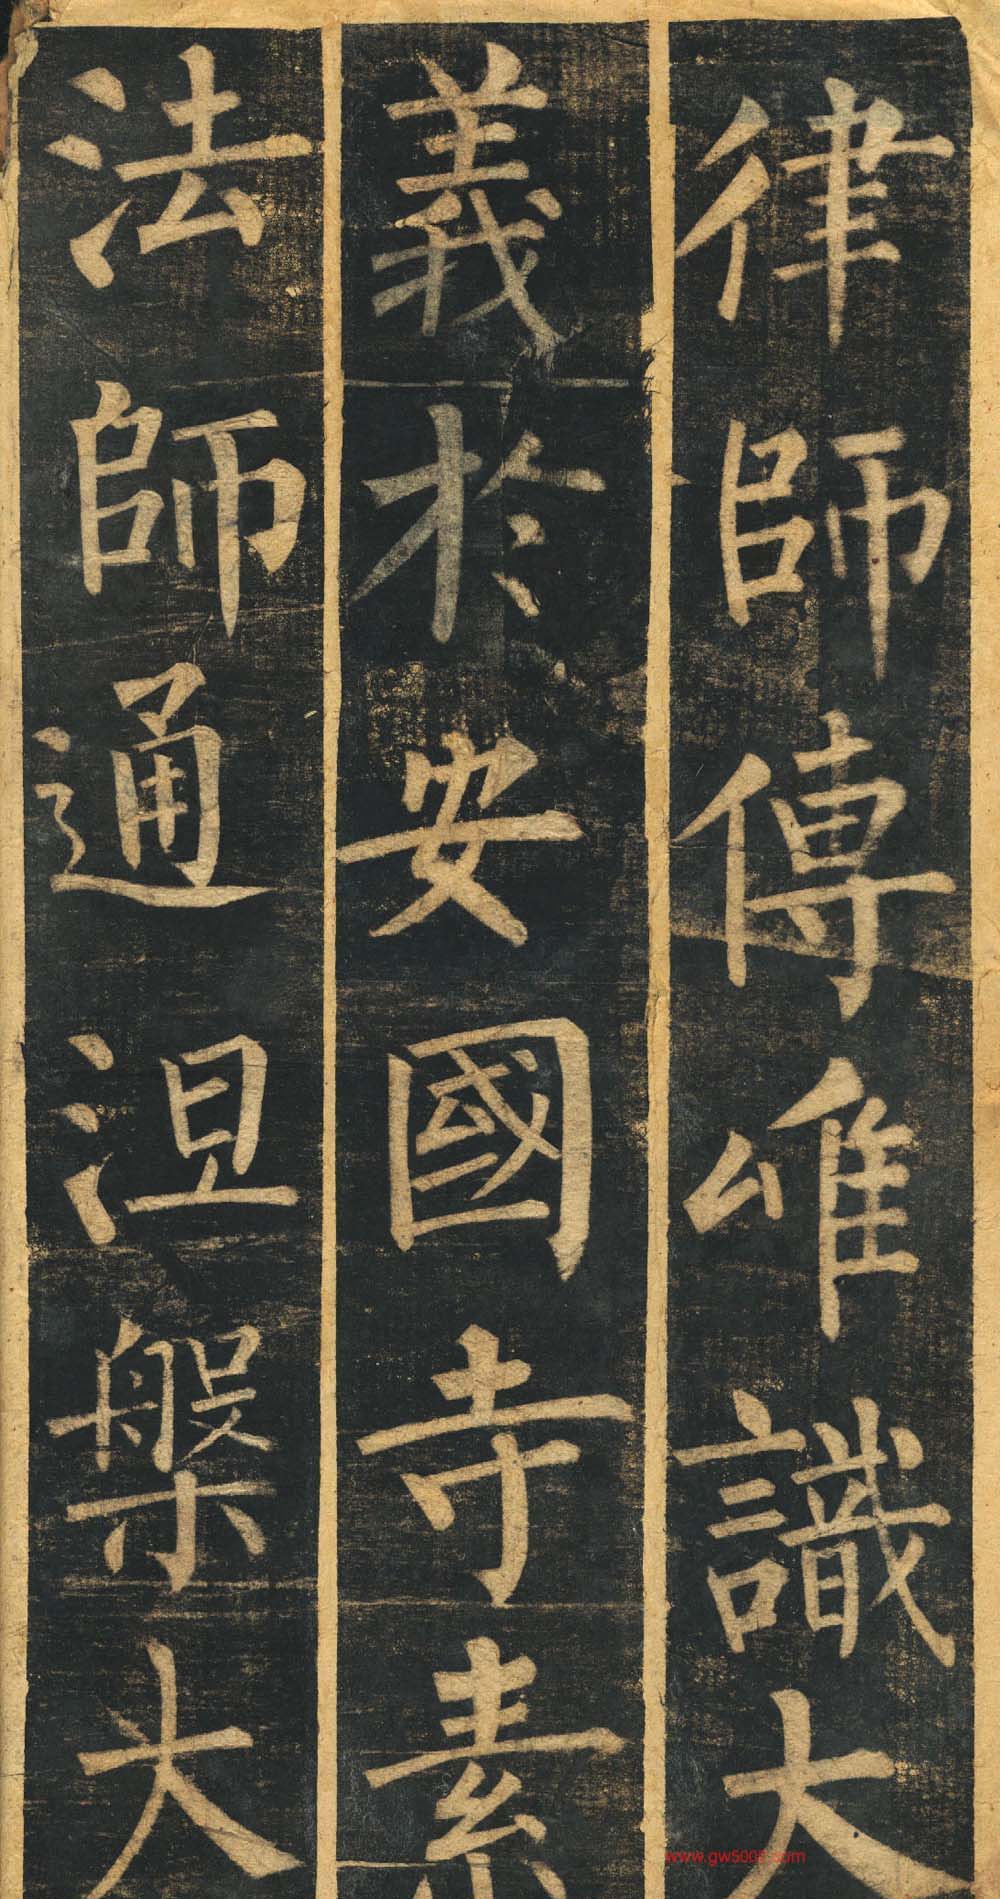 律師傳唯識大
義於安國寺素
法師通涅槃大
www.gw5000.com